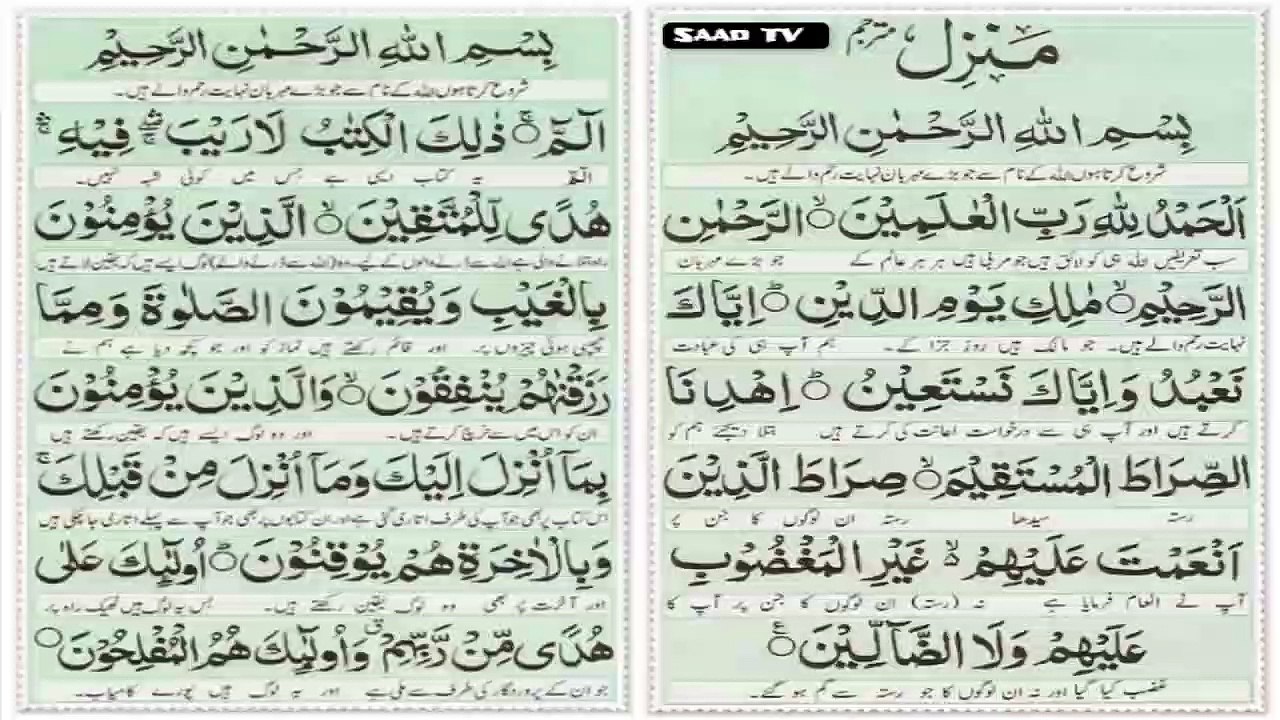 SAAD TV
مَنْزِل مترجم
بِسْمِ اللهِ الرَّحْمٰنِ الرَّحِيْمِ
شروع کرتا ہوں اللہ کے نام سے جو بڑے مہربان نہایت رحم والے ہیں۔
اَلْحَمْدُ لِلّٰهِ رَبِّ الْعٰلَمِيْنَ ۙ الرَّحْمٰنِ
سب تعریفیں اللہ ہی کو لائق ہیں جو مربی ہیں ہر ہر عالم کے جو بڑے مہربان
الرَّحِيْمِ ۙ مٰلِكِ يَوْمِ الدِّيْنِ ؕ اِيَّاكَ
نہایت رحم والے ہیں۔ جو مالک ہیں روز جزا کے۔ ہم آپ ہی کی عبادت
نَعْبُدُ وَاِيَّاكَ نَسْتَعِيْنُ ؕ اِهْدِنَا
کرتے ہیں اور آپ ہی سے درخواست اعانت کی کرتے ہیں بتلا دیجئے ہم کو
الصِّرَاطَ الْمُسْتَقِيْمَ ۙ صِرَاطَ الَّذِيْنَ
رستہ سیدھا رستہ ان لوگوں کا جن پر
اَنْعَمْتَ عَلَيْهِمْ ۙ غَيْرِ الْمَغْضُوْبِ
آپ نے انعام فرمایا ہے نہ (رستہ) ان لوگوں کا جن پر آپ کا
عَلَيْهِمْ وَلَا الضَّآلِّيْنَ ۚ
غضب کیا گیا اور نہ ان لوگوں کا جو رستہ سے گم ہو گئے۔
بِسْمِ اللهِ الرَّحْمٰنِ الرَّحِيْمِ
شروع کرتا ہوں اللہ کے نام سے جو بڑے مہربان نہایت رحم والے ہیں۔
الٓمّٓ ۚ ذٰلِكَ الْكِتٰبُ لَا رَيْبَ ۛ فِيْهِ ۛ
الٓمّٓ یہ کتاب ایسی ہے جس میں کوئی شبہ نہیں۔
هُدًى لِّلْمُتَّقِيْنَ ۙ الَّذِيْنَ يُؤْمِنُوْنَ
راہ بتلانے والی ہے اللہ سے ڈرنے والوں کے لیے۔ وہ (اللہ سے ڈرنے والے) لوگ ایسے ہیں کہ یقین لاتے ہیں
بِالْغَيْبِ وَيُقِيْمُوْنَ الصَّلٰوةَ وَمِمَّا
چھپی ہوئی چیزوں پر۔ اور قائم رکھتے ہیں نماز کو اور جو کچھ دیا ہے ہم نے
رَزَقْنٰهُمْ يُنْفِقُوْنَ ۙ وَالَّذِيْنَ يُؤْمِنُوْنَ
ان کو اس میں سے خرچ کرتے ہیں۔ اور وہ لوگ ایسے ہیں کہ یقین رکھتے ہیں
بِمَآ اُنْزِلَ اِلَيْكَ وَمَآ اُنْزِلَ مِنْ قَبْلِكَ ۚ
اس کتاب پر بھی جو آپ کی طرف اتاری گئی ہے اور ان کتابوں پر بھی جو آپ سے پہلے اتاری جا چکی ہیں
وَبِالْاٰخِرَةِ هُمْ يُوْقِنُوْنَ ؕ اُولٰٓئِكَ عَلٰى
اور آخرت پر بھی وہ لوگ یقین رکھتے ہیں۔ بس یہ لوگ ہیں ٹھیک راہ پر
هُدًى مِّنْ رَّبِّهِمْ ۗ وَاُولٰٓئِكَ هُمُ الْمُفْلِحُوْنَ ۝
جو ان کے پروردگار کی طرف سے ملی ہے اور یہ لوگ ہیں پورے کامیاب۔